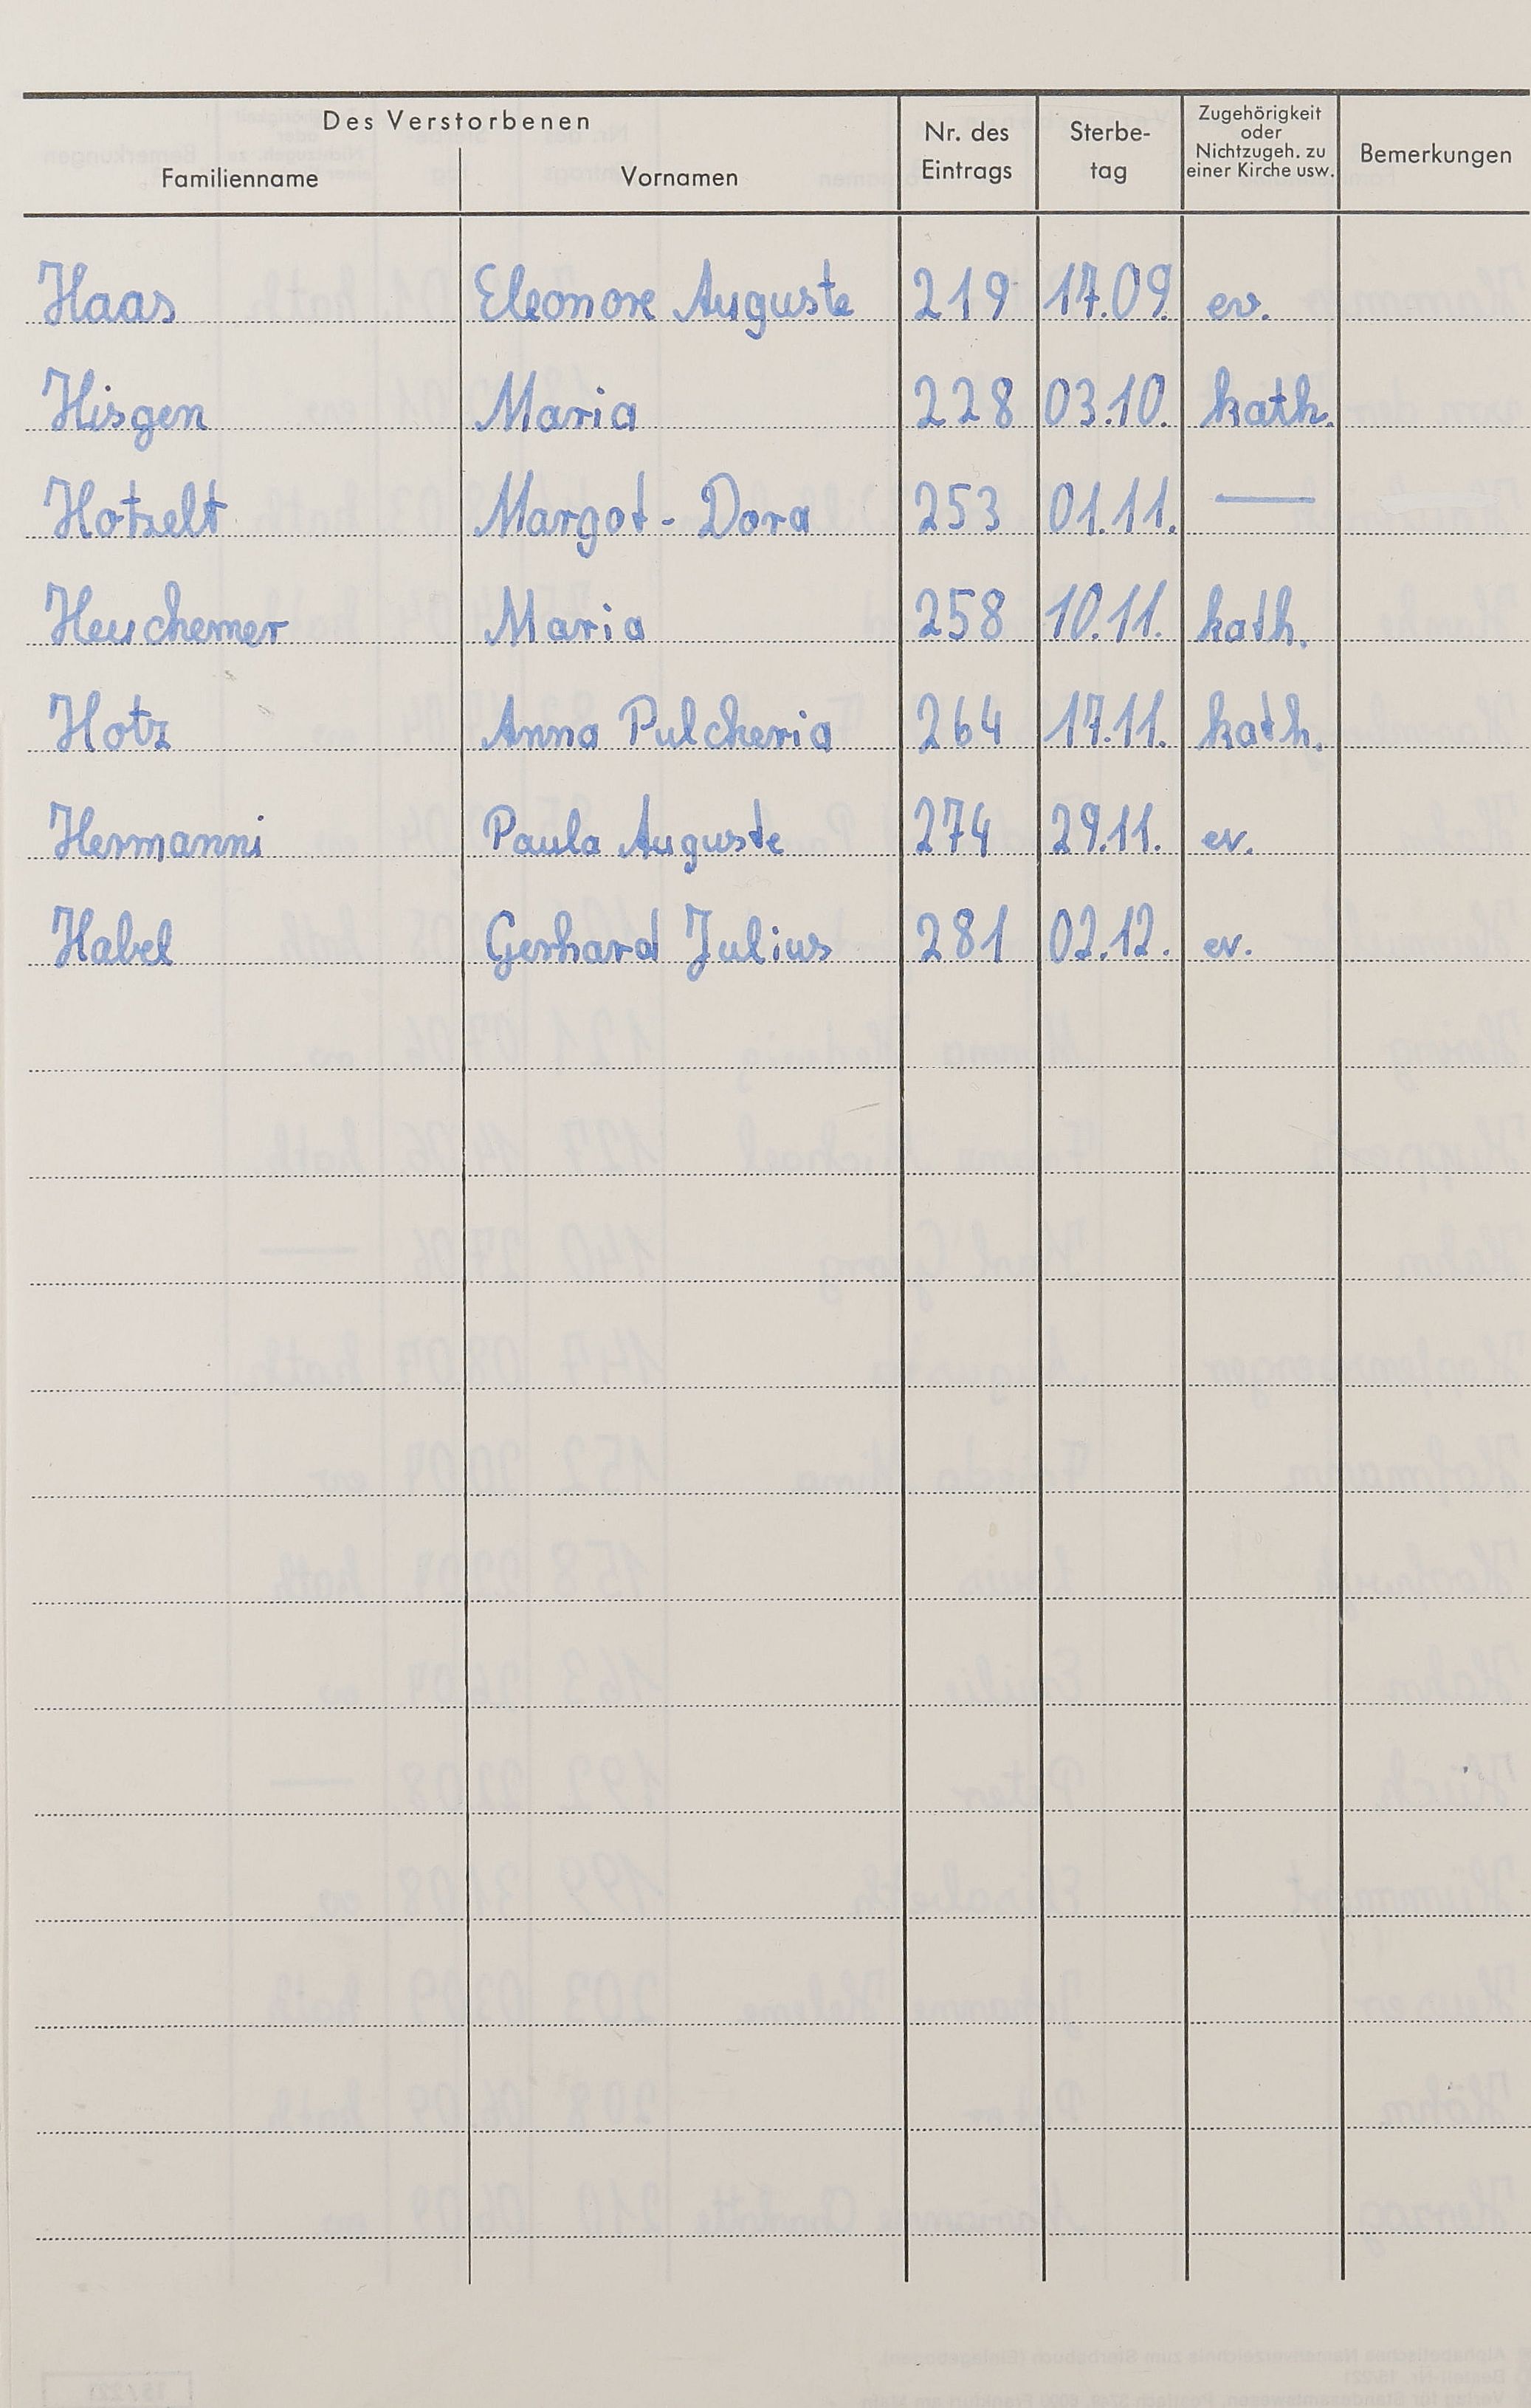 Des Verstorbenen
Familienname Vornamen Nr. des Eintrags Sterbe- tag Zugehörigkeit oder Nichtzugeh. zu einer Kirche usw. Bemerkungen
Haas Eleonore Auguste 219 17.09. ev.
Hisgen Maria 228 03.10. kath.
Hotzelt Margot - Dora 253 01.11. —
Heuchemer Maria 258 10.11. kath.
Hotz Anna Pulcheria 264 17.11. kath.
Hermanni Paula Auguste 274 29.11. ev.
Habel Gerhard Julius 281 02.12. ev.